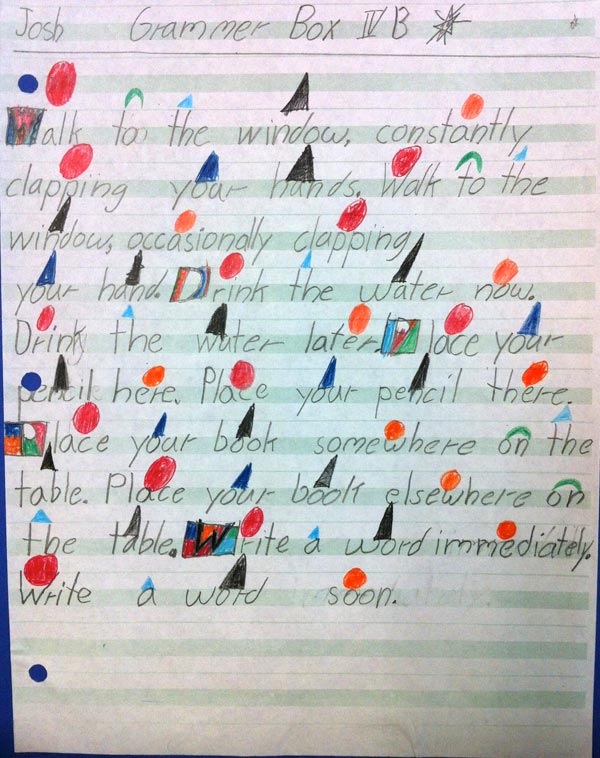 Josh Grammer Box IV B
Walk to the window, constantly
clapping your hands. Walk to the
window, occasionally clapping
your hand. Drink the water now.
Drink the water later. Place your
pencil here. Place your pencil there.
Place your book somewhere on the
table. Place your book elsewhere on
the table. Write a word immediately.
Write a word soon.